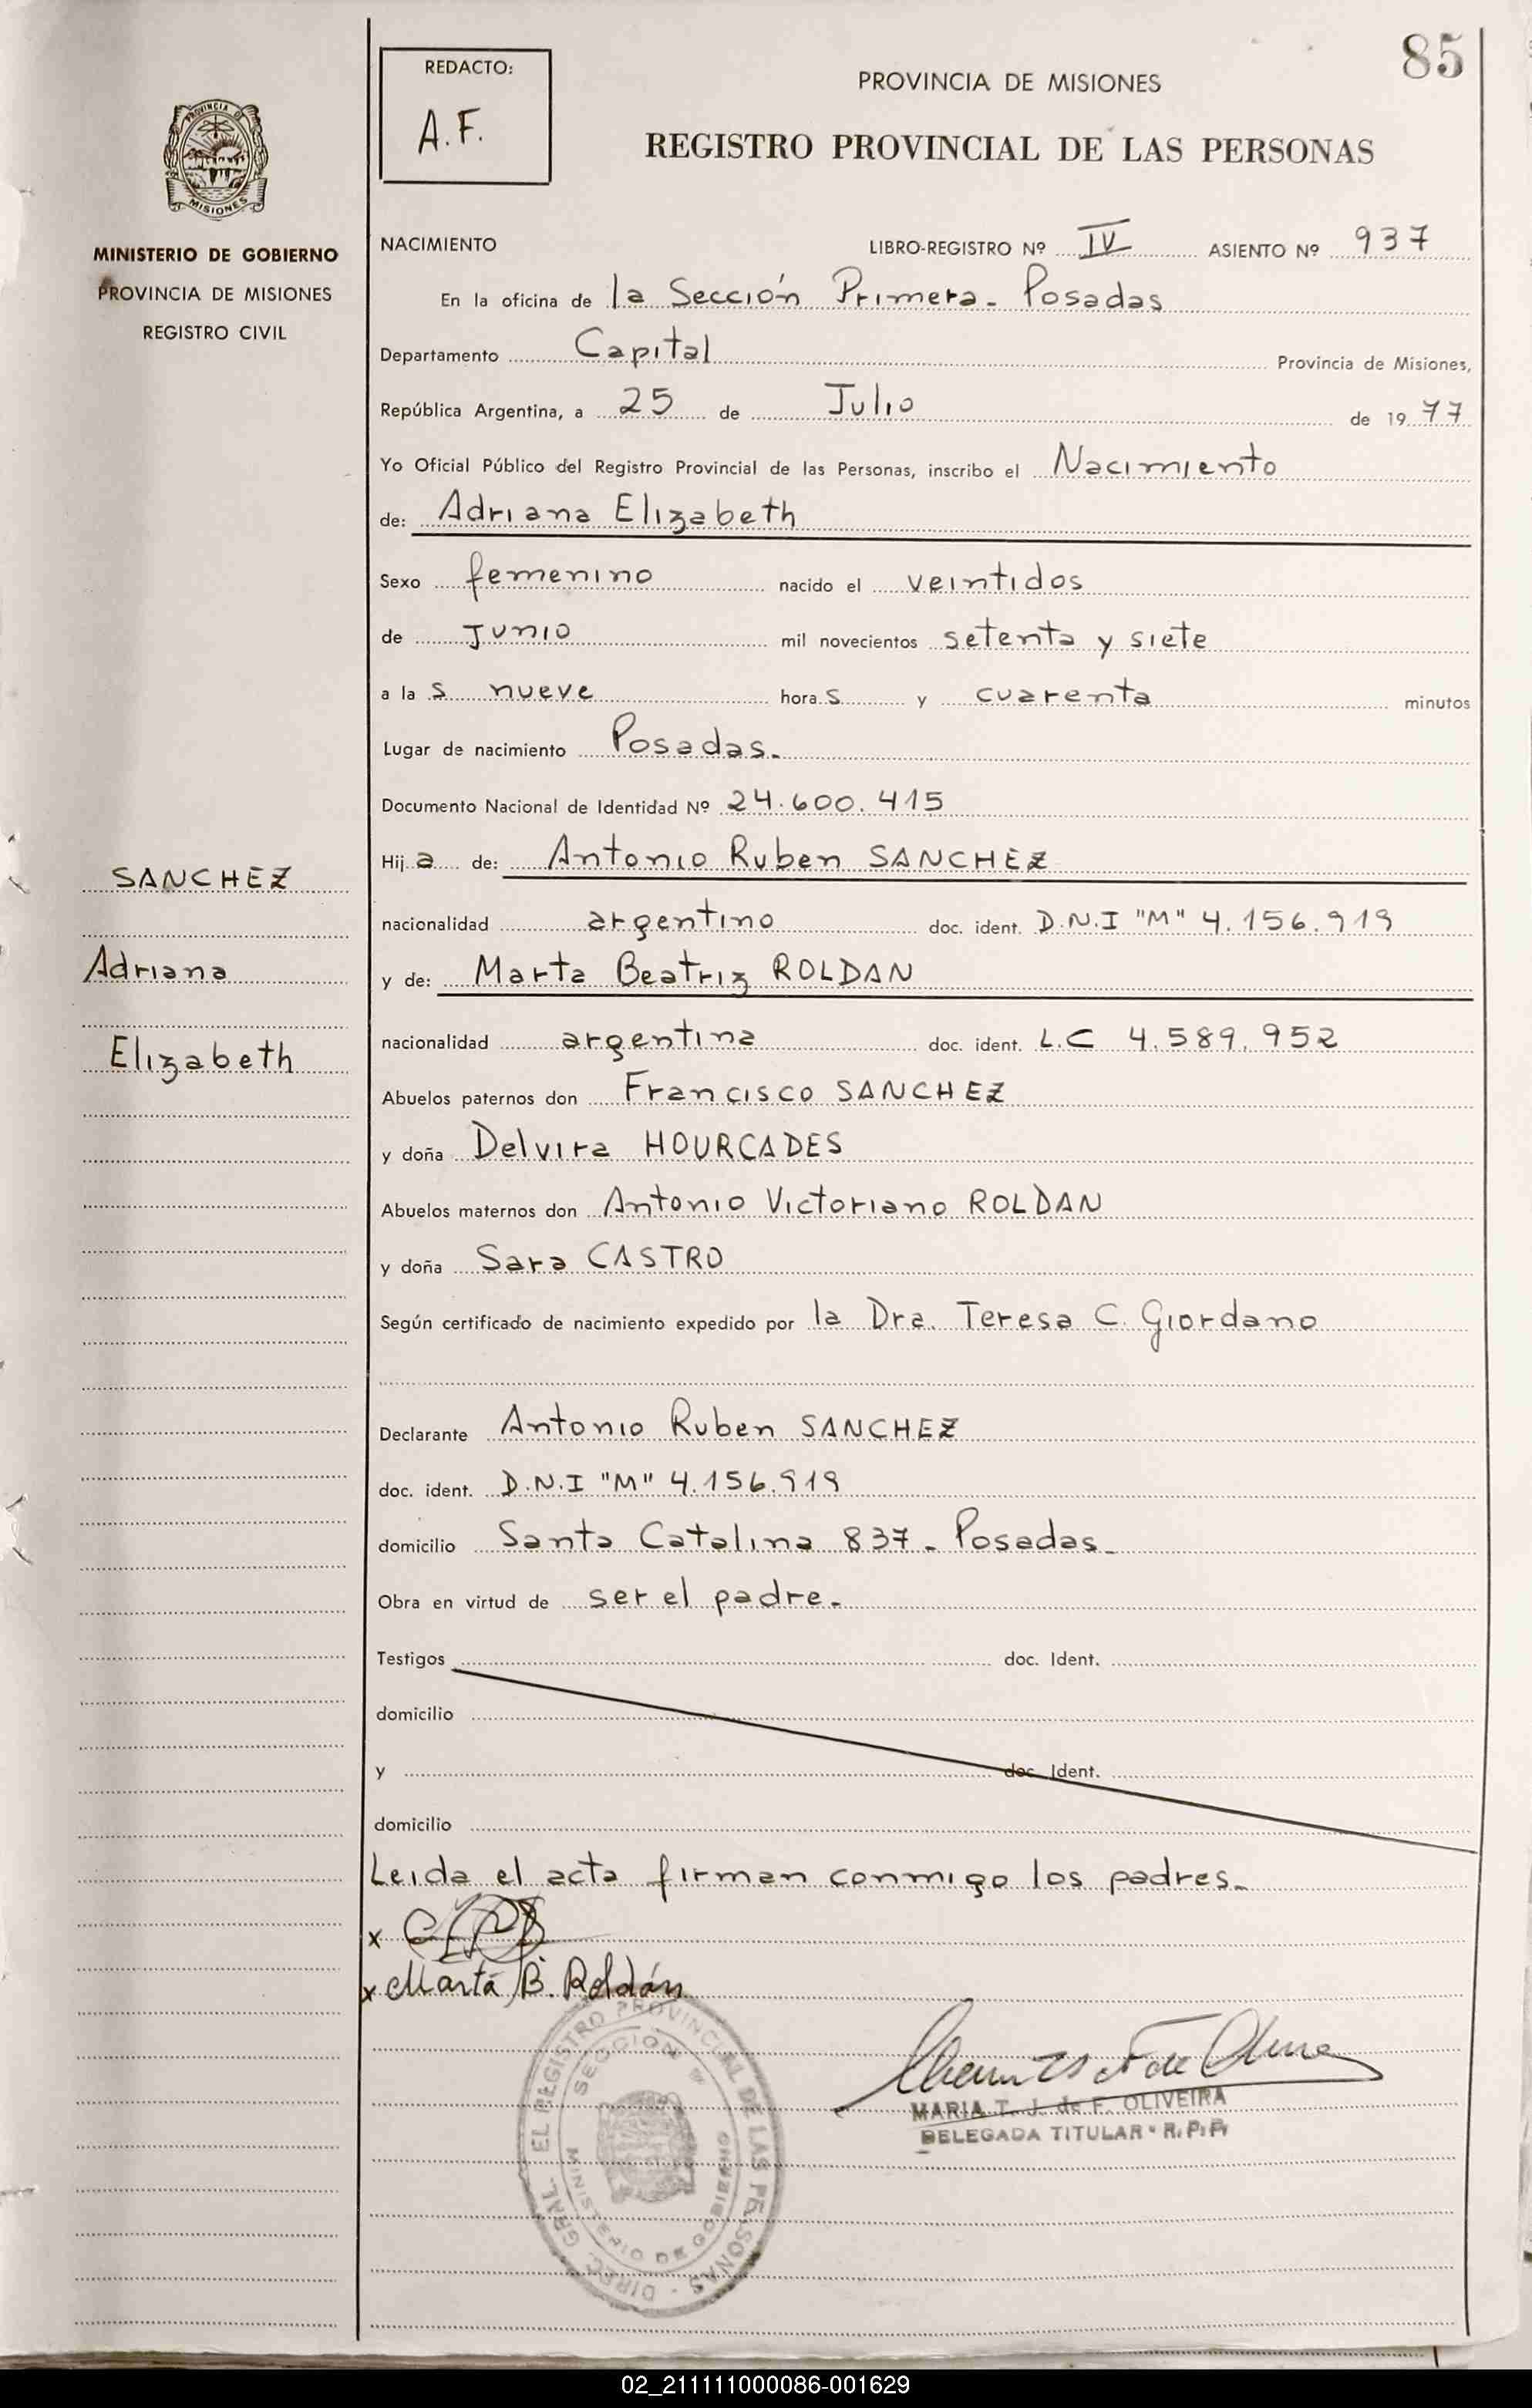 85
REDACTO:
A.F.
PROVINCIA DE MISIONES
REGISTRO PROVINCIAL DE LAS PERSONAS
PROVINCIA DE
MISIONES
MINISTERIO DE GOBIERNO
PROVINCIA DE MISIONES
REGISTRO CIVIL
NACIMIENTO LIBRO-REGISTRO Nº IV ASIENTO Nº 937
En la oficina de la Sección Primera - Posadas
Departamento Capital Provincia de Misiones,
República Argentina, a 25 de Julio de 1977
Yo Oficial Público del Registro Provincial de las Personas, inscribo el Nacimiento
de: Adriana Elizabeth
Sexo femenino nacido el veintidos
de Junio mil novecientos setenta y siete
a la s nueve hora s y cuarenta minutos
Lugar de nacimiento Posadas.-
Documento Nacional de Identidad Nº 24.600.415
Hij a de: Antonio Ruben SANCHEZ
nacionalidad argentino doc. ident. D.N.I "M" 4.156.919
y de: Marta Beatriz ROLDAN
nacionalidad argentina doc. ident. L.C 4.589.952
Abuelos paternos don Francisco SANCHEZ
y doña Delvira HOURCADES
Abuelos maternos don Antonio Victoriano ROLDAN
y doña Sara CASTRO
Según certificado de nacimiento expedido por la Dra. Teresa C. Giordano
Declarante Antonio Ruben SANCHEZ
doc. ident. D.N.I "M" 4.156.919
domicilio Santa Catalina 837 - Posadas -
Obra en virtud de ser el padre.-
Testigos doc. Ident.
domicilio
y doc. Ident.
domicilio
Leida el acta firman conmigo los padres.-
x
x Marta B. Roldán
MARIA T. J. de F. OLIVEIRA
DELEGADA TITULAR - R.P.P.
DIREC. GRAL. EL REGISTRO PROVINCIAL DE LAS PERSONAS
SECCION 1ª
MINISTERIO DE GOBIERNO
SANCHEZ
Adriana
Elizabeth
02_211111000086-001629